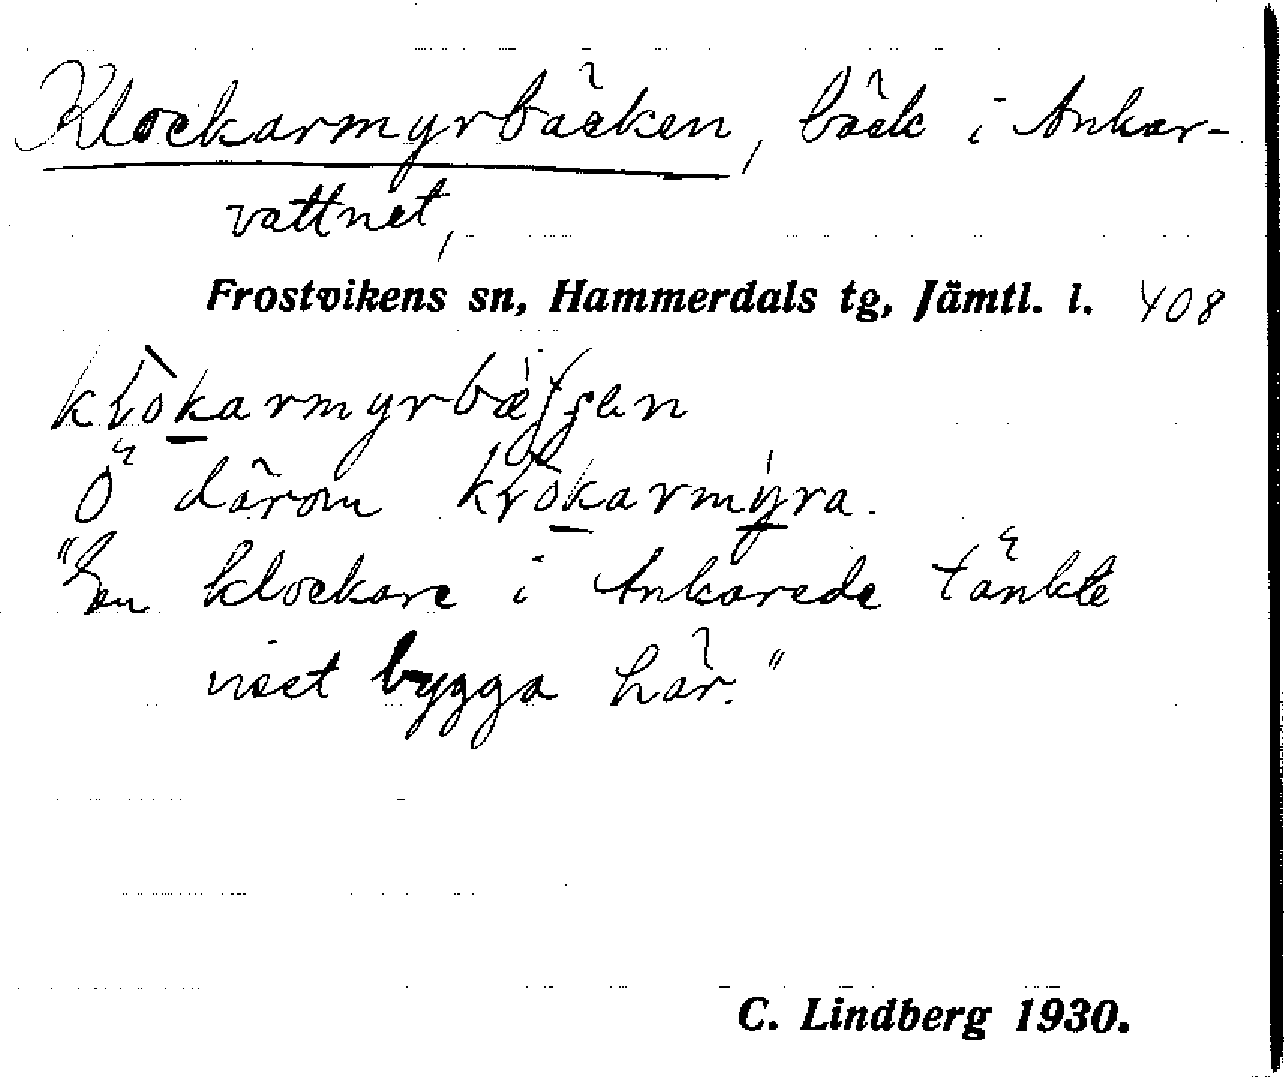 Klockarmyrbäcken, bäck i Ankar-
vattnet,
Frostvikens sn, Hammerdals tg, Jämtl. l. 408
Ö därom
"En klockare i Ankarede tänkte
visst bygga här."
C. Lindberg 1930.